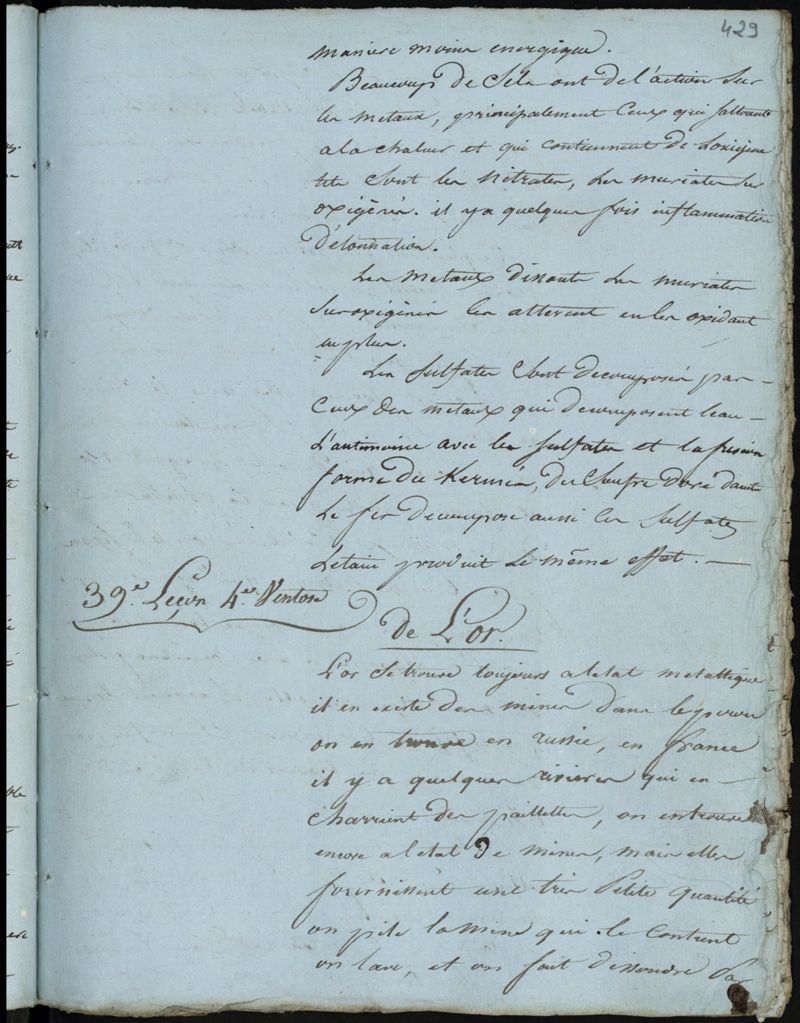 429
maniere moins energique.
Beaucoup de Sels ont de l'action Sur
les metaux, principalement Ceux qui
a la chaleur et qui contiennent de Loxigene
tels Sont les Nitrates, les muriates Sur
oxigénés. il y a quelques fois inflammation
Détonnation.
Les Metaux dissouts les muriates
Suroxigénés les alterent en les oxidant
en plus.
Les Sulfates Sont decomposés par
Ceux des metaux qui decomposent leau
L'antimoine avec les Sulfates et la fusion
forme du Kermès, du Soufre Doré dant
Le fer decompose aussi les Sulfates
Letain produit Le même effet.
39.e Leçon 4.er Ventose
de L'or.
L'or Se trouve toujours a letat metallique
il en existe des mines dans le perou
on en trouve en russie, en france
il y a quelques rivieres qui en
charrient des paillettes, on en trouve
encore a letat De mines, mais elles
fournissent une très Petite quantité
on pile la mine qui le Contient
on lave, et on fait dissoudre Par